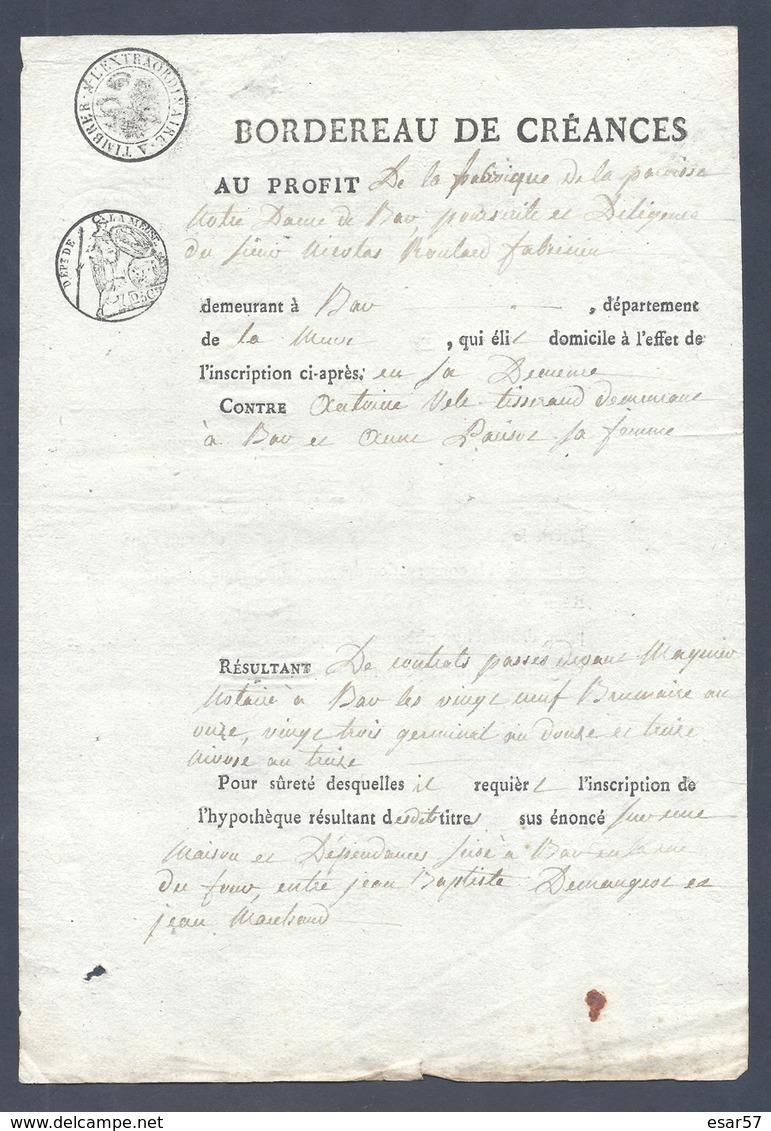 A TIMBRER À L'EXTRAORDINAIRE.
BORDEREAU DE CRÉANCES
AU PROFIT De la fabrique de la paroisse
Notre Dame de Bar poursuite et Diligence
du sieur Nicolas Roulard fabricien
DÉPT DE LA MEUSE
demeurant à Bar , département
de la Meuse , qui élit domicile à l'effet de
l'inscription ci-après. en sa Demeure
CONTRE Antoine Vele tisserand demeurant
à Bar et Anne sa femme
RÉSULTANT De contrats passés devant Magnier
Notaire à Bar les vingt neuf Brumaire an
onze, vingt trois germinal an douze et treize
nivose an treize
Pour sûreté desquelles il requièrt l'inscription de
l'hypothèque résultant desdits titres sus énoncé sur une
Maison et Déppendances sise à Bar en la rue
du four, entre jean Baptiste Demangeot et
jean Marchand
esar57